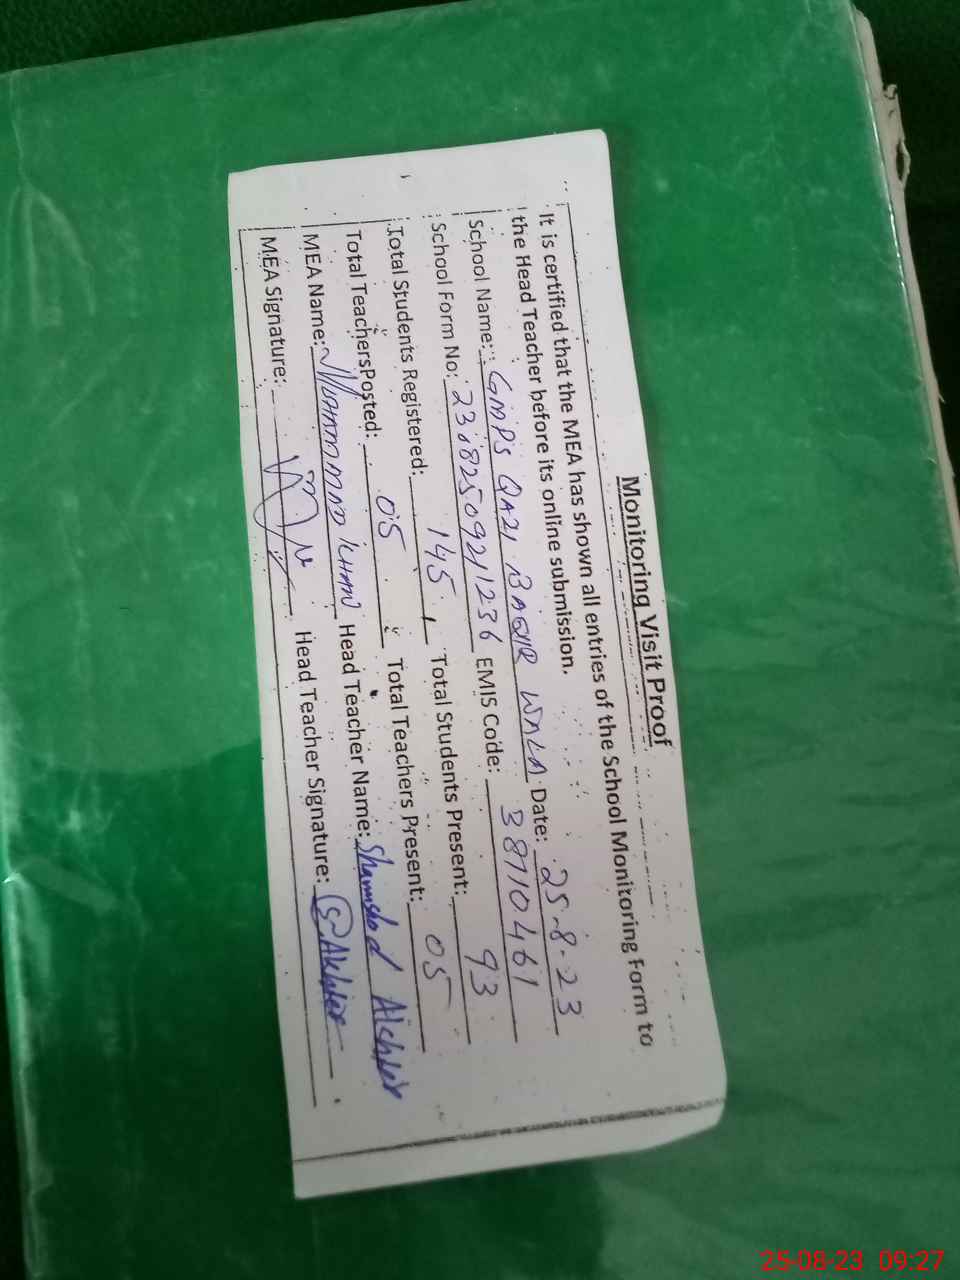 Monitoring Visit Proof
It is certified that the MEA has shown all entries of the School Monitoring Form to
the Head Teacher before its online submission.
School Name: GMPS QAZI BAQIR WALA Date: 25-8-23
School Form No: 23082509211236 EMIS Code: 38710461
Total Students Registered: 145 Total Students Present: 93
Total Teachers Posted: 05 Total Teachers Present: 05
MEA Name: Muhammad Khan Head Teacher Name: Shamshad Akhter
MEA Signature: Head Teacher Signature: S. Akhter
25-08-23 09:27